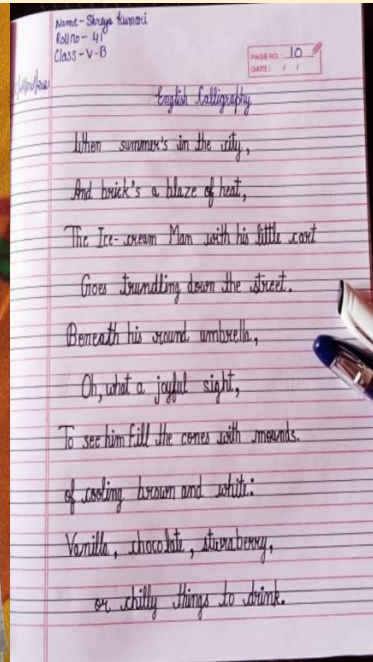 Name - Shreya Kumari
Roll no - 41
Class - V - B
PAGE NO.: 10
DATE: / /
English Calligraphy
When summer's in the city,
And brick's a blaze of heat,
The Ice-cream Man with his little cart
Goes trundling down the street.
Beneath his round umbrella,
Oh, what a joyful sight,
To see him fill the cones with mounds.
of cooling brown and white:
Vanilla, chocolate, sturaberry,
or chilly things to drink.